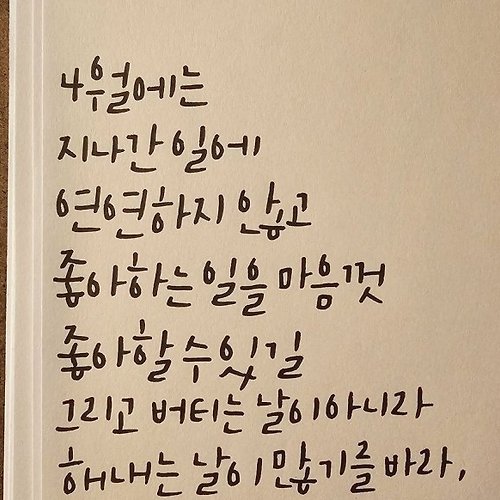 4월에는
지나간 일에
연연하지 않고
좋아하는 일을 마음껏
좋아할 수 있길
그리고 버티는 날이 아니라
해내는 날이 많기를 바라,